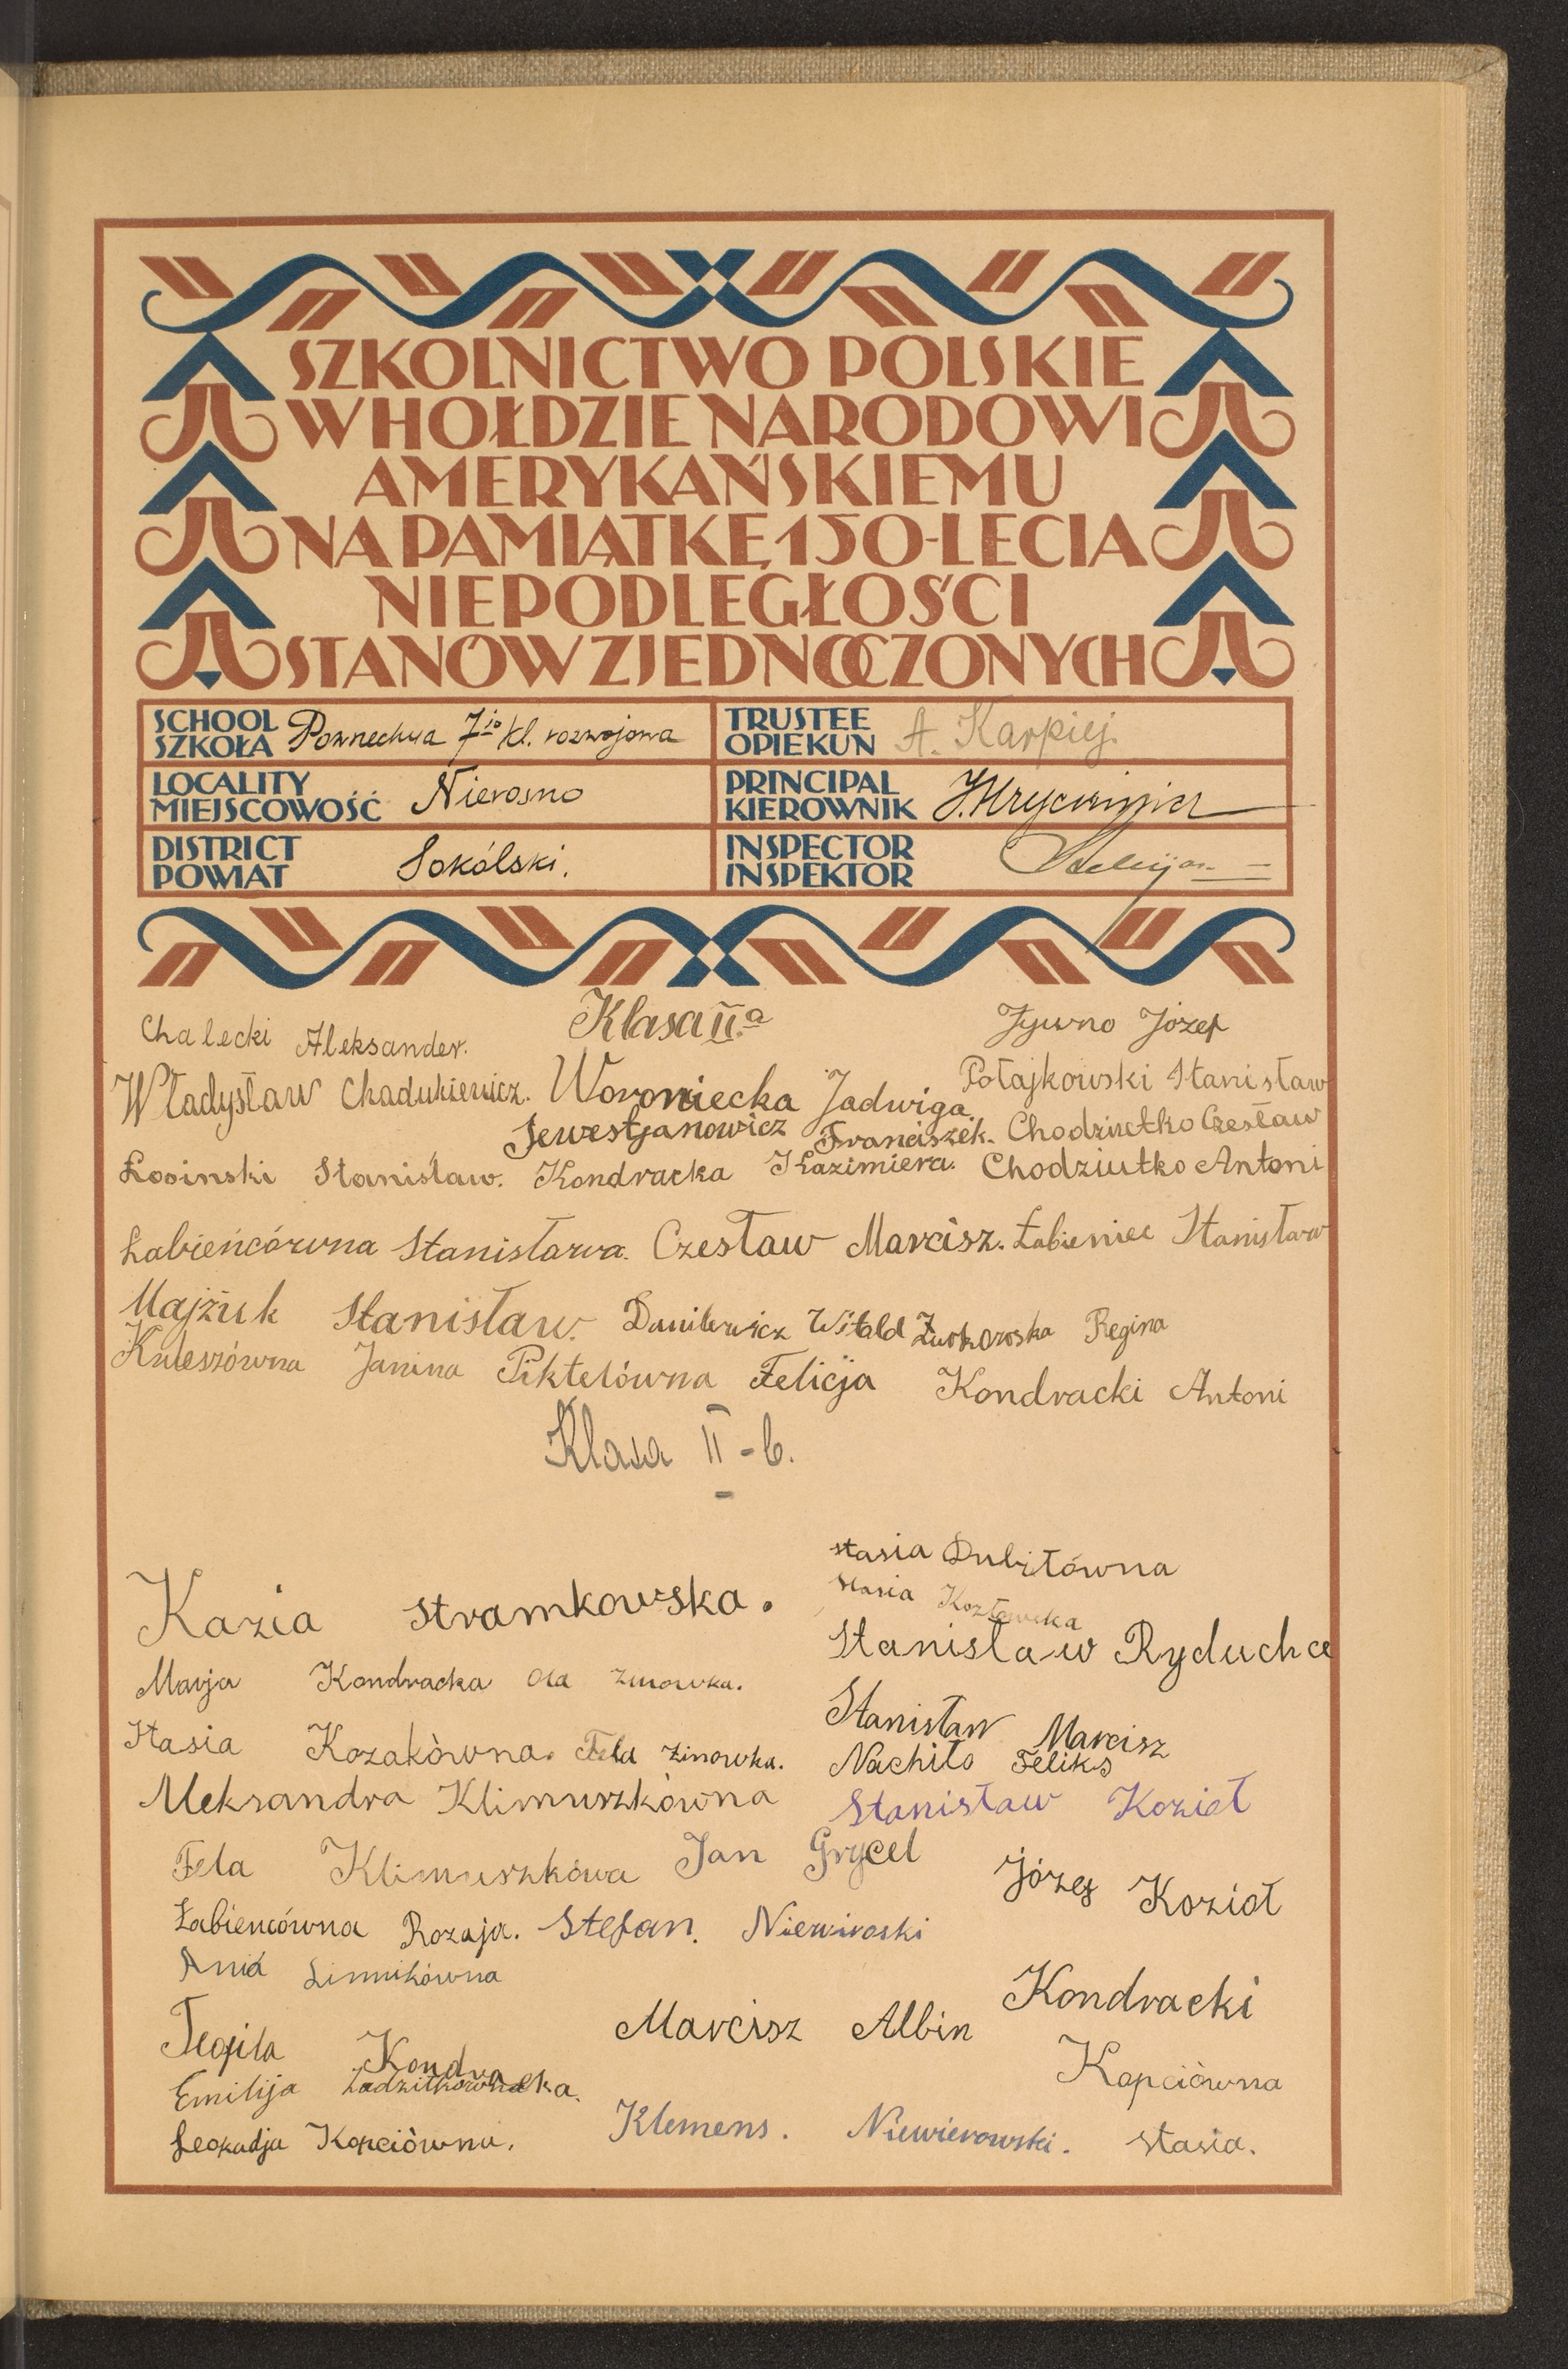 SZKOLNICTWO POLSKIE
W HOŁDZIE NARODOWI
AMERYKAŃSKIEMU
NA PAMIĄTKĘ 150-LECIA
NIEPODLEGŁOŚCI
STANÓW ZJEDNOCZONYCH
SCHOOL
SZKOŁA
Powszechna 7io kl. rozwojowa
TRUSTEE
OPIEKUN
A. Karpiej.
LOCALITY
MIEJSCOWOŚĆ
Nierosno
PRINCIPAL
KIEROWNIK
DISTRICT
POWIAT
Sokólski.
INSPECTOR
INSPEKTOR
Klasa II.a
Chalecki Aleksander.
Żywno Józef
Władysław Chadukiewicz. Woroniecka Jadwiga. Połajkowski Stanisław
Jewestjanowicz Franciszek. Chodziutko Czesław
Łosinski Stanisław. Kondracka Kazimiera. Chodziutko Antoni
Łabieńcówna Stanisława. Czesław Marcisz. Łabieniec Stanisław
Majżuk Stanisław. Danilewicz Witold Żurkowska Regina
Kuleszówna Janina Piktelówna Felicja Kondracki Antoni
Klasa II-b.
Stasia Dubiłówna
Kazia Stramkowska.
Stasia Kozłowska
Stanisław Ryduchce
Marja Kondracka Ola Zinowka.
Stanisław Marcisz
Stasia Kozakòwna. Fela Zinowka. Nachiło Feliks
Aleksandra Klimuszkòwna Stanisław Kozieł
Fela Klimuszkówa Jan Grycel
Józef Kozioł
Łabiencówna Rozaja. Stefan. Niewiroski
Ania Linnikówna
Kondracki
Marcisz Albin
Teofila Kondracka.
Kopciòwna
Emilija
Leokadja Kopciòwna.
Klemens. Niewierowski. Stasia.